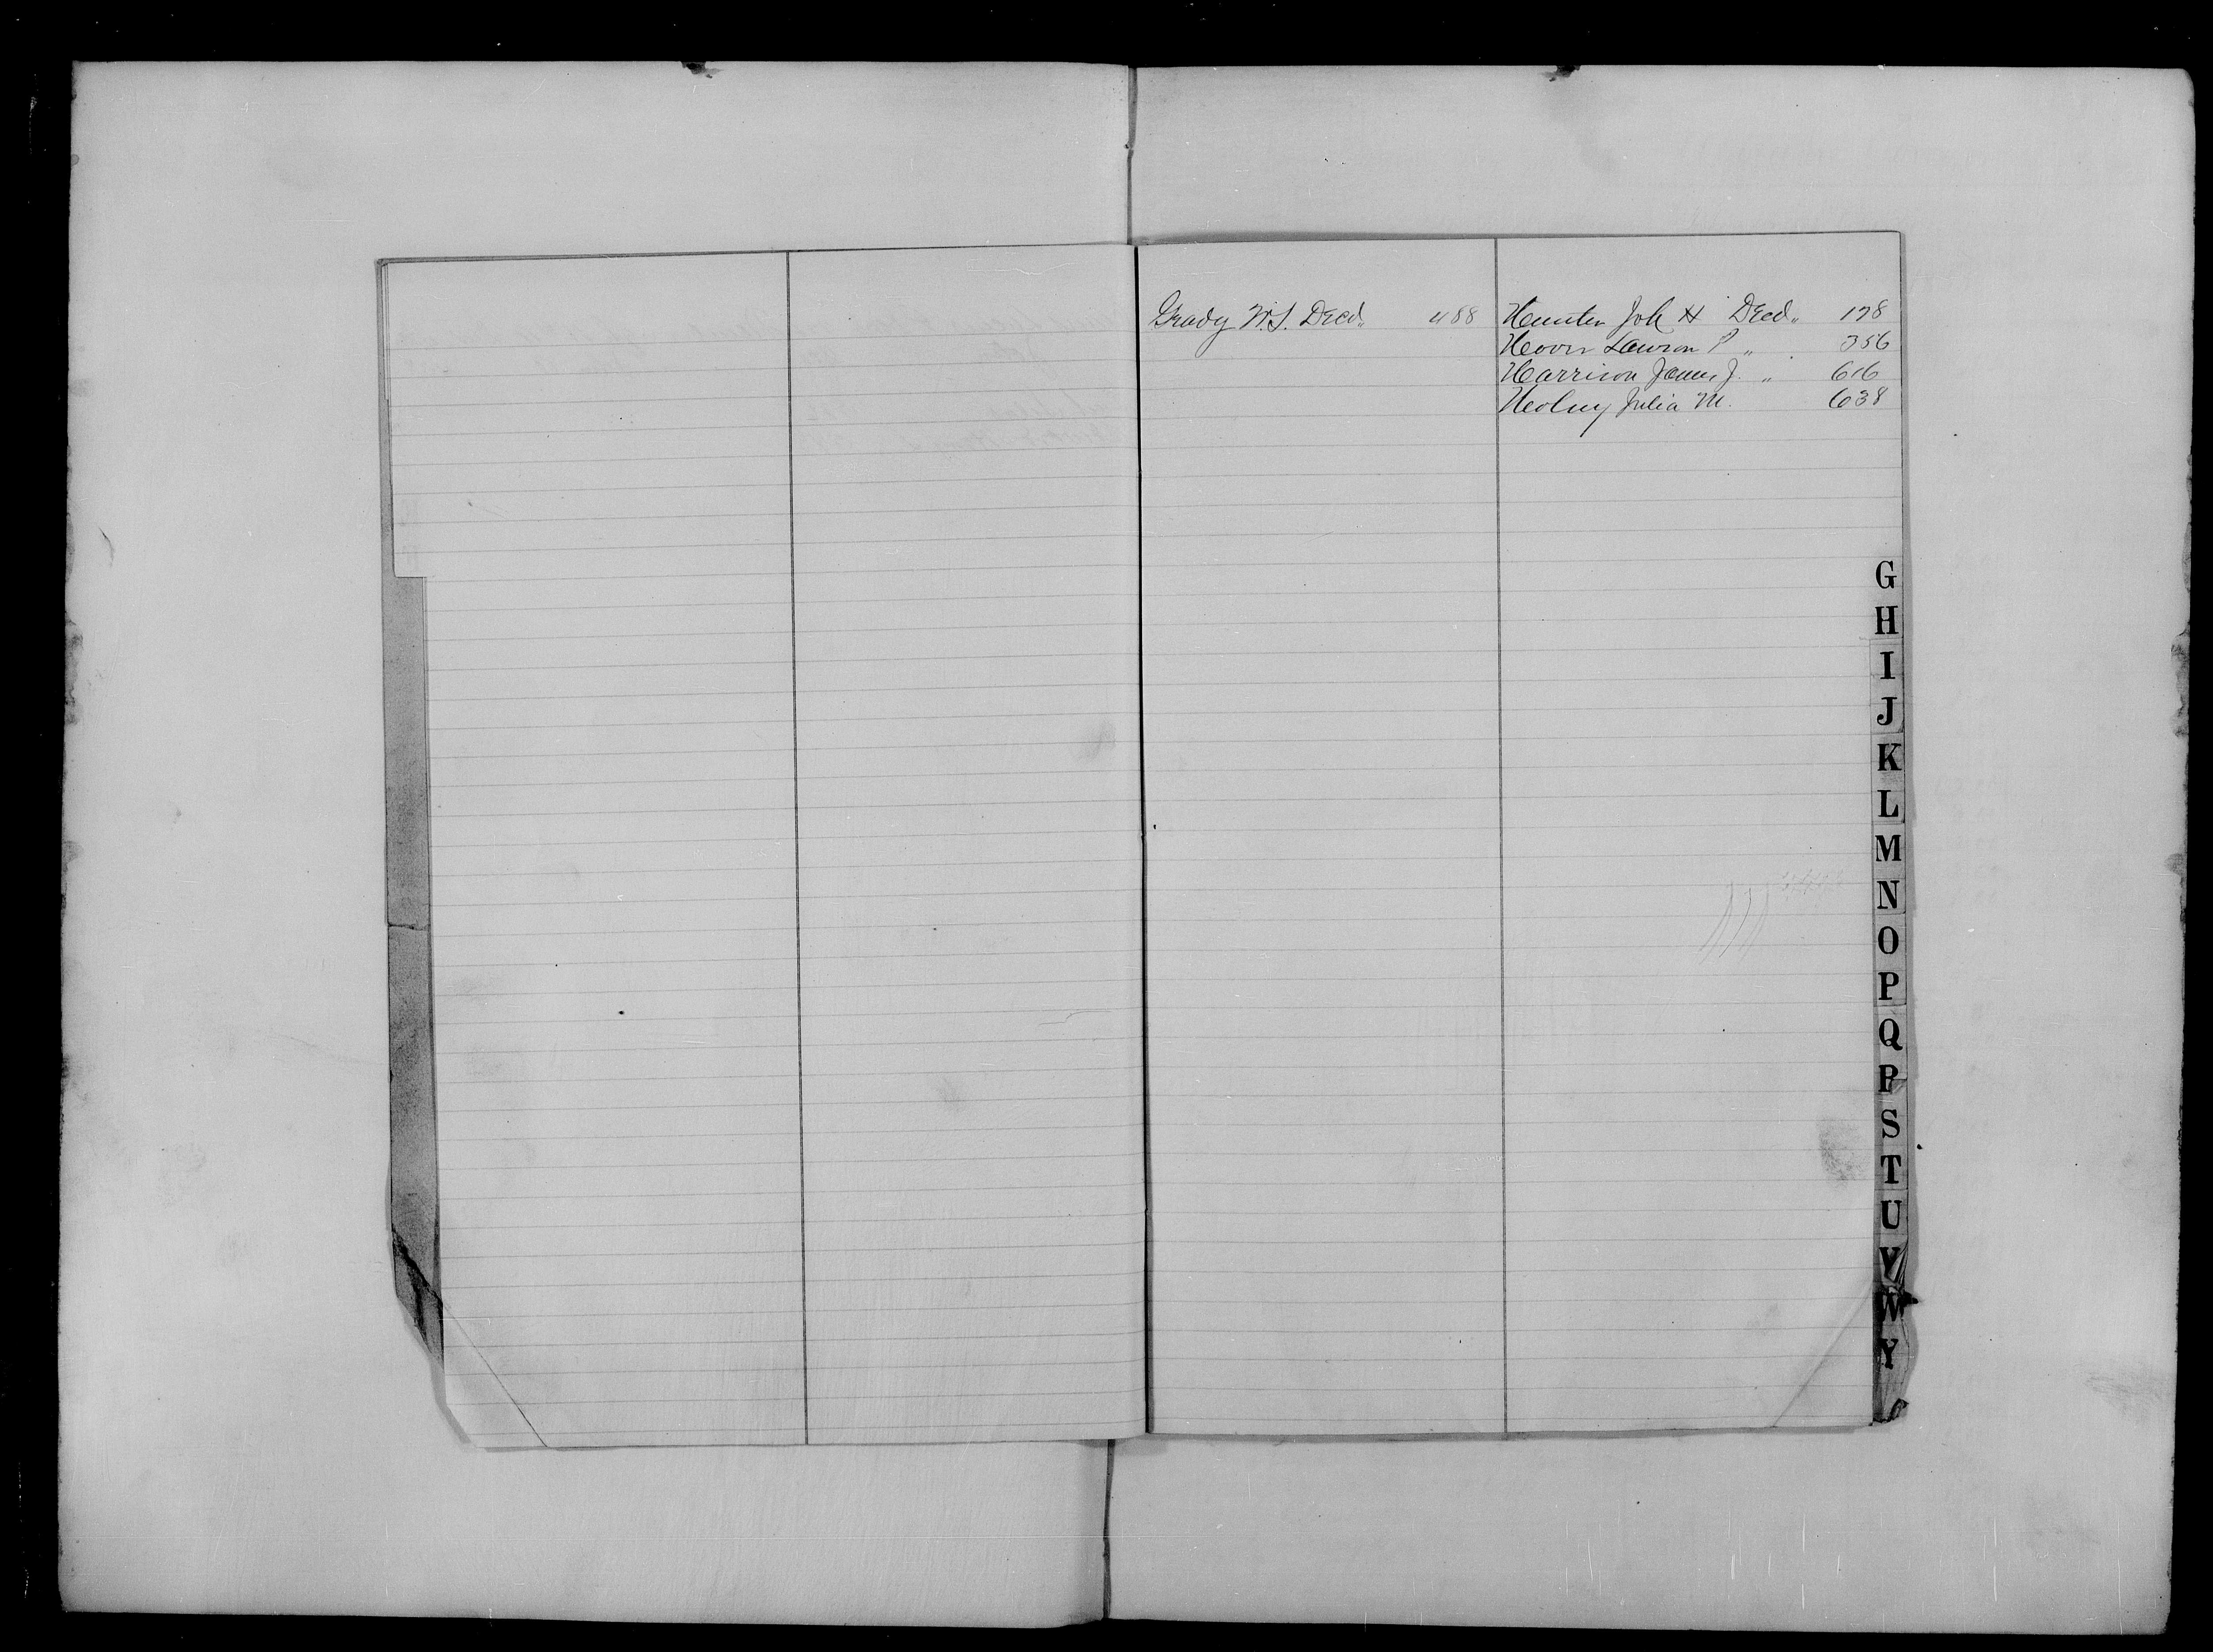 Grady W.S. Decd. 488
Hunter Joh H Decd. 178
Hoover Lawson P " 356
Harrison James J. " 616
Holmy Julia M. 638
G
H
I
J
K
L
M
N
O
P
Q
R
S
T
U
V
W
Y